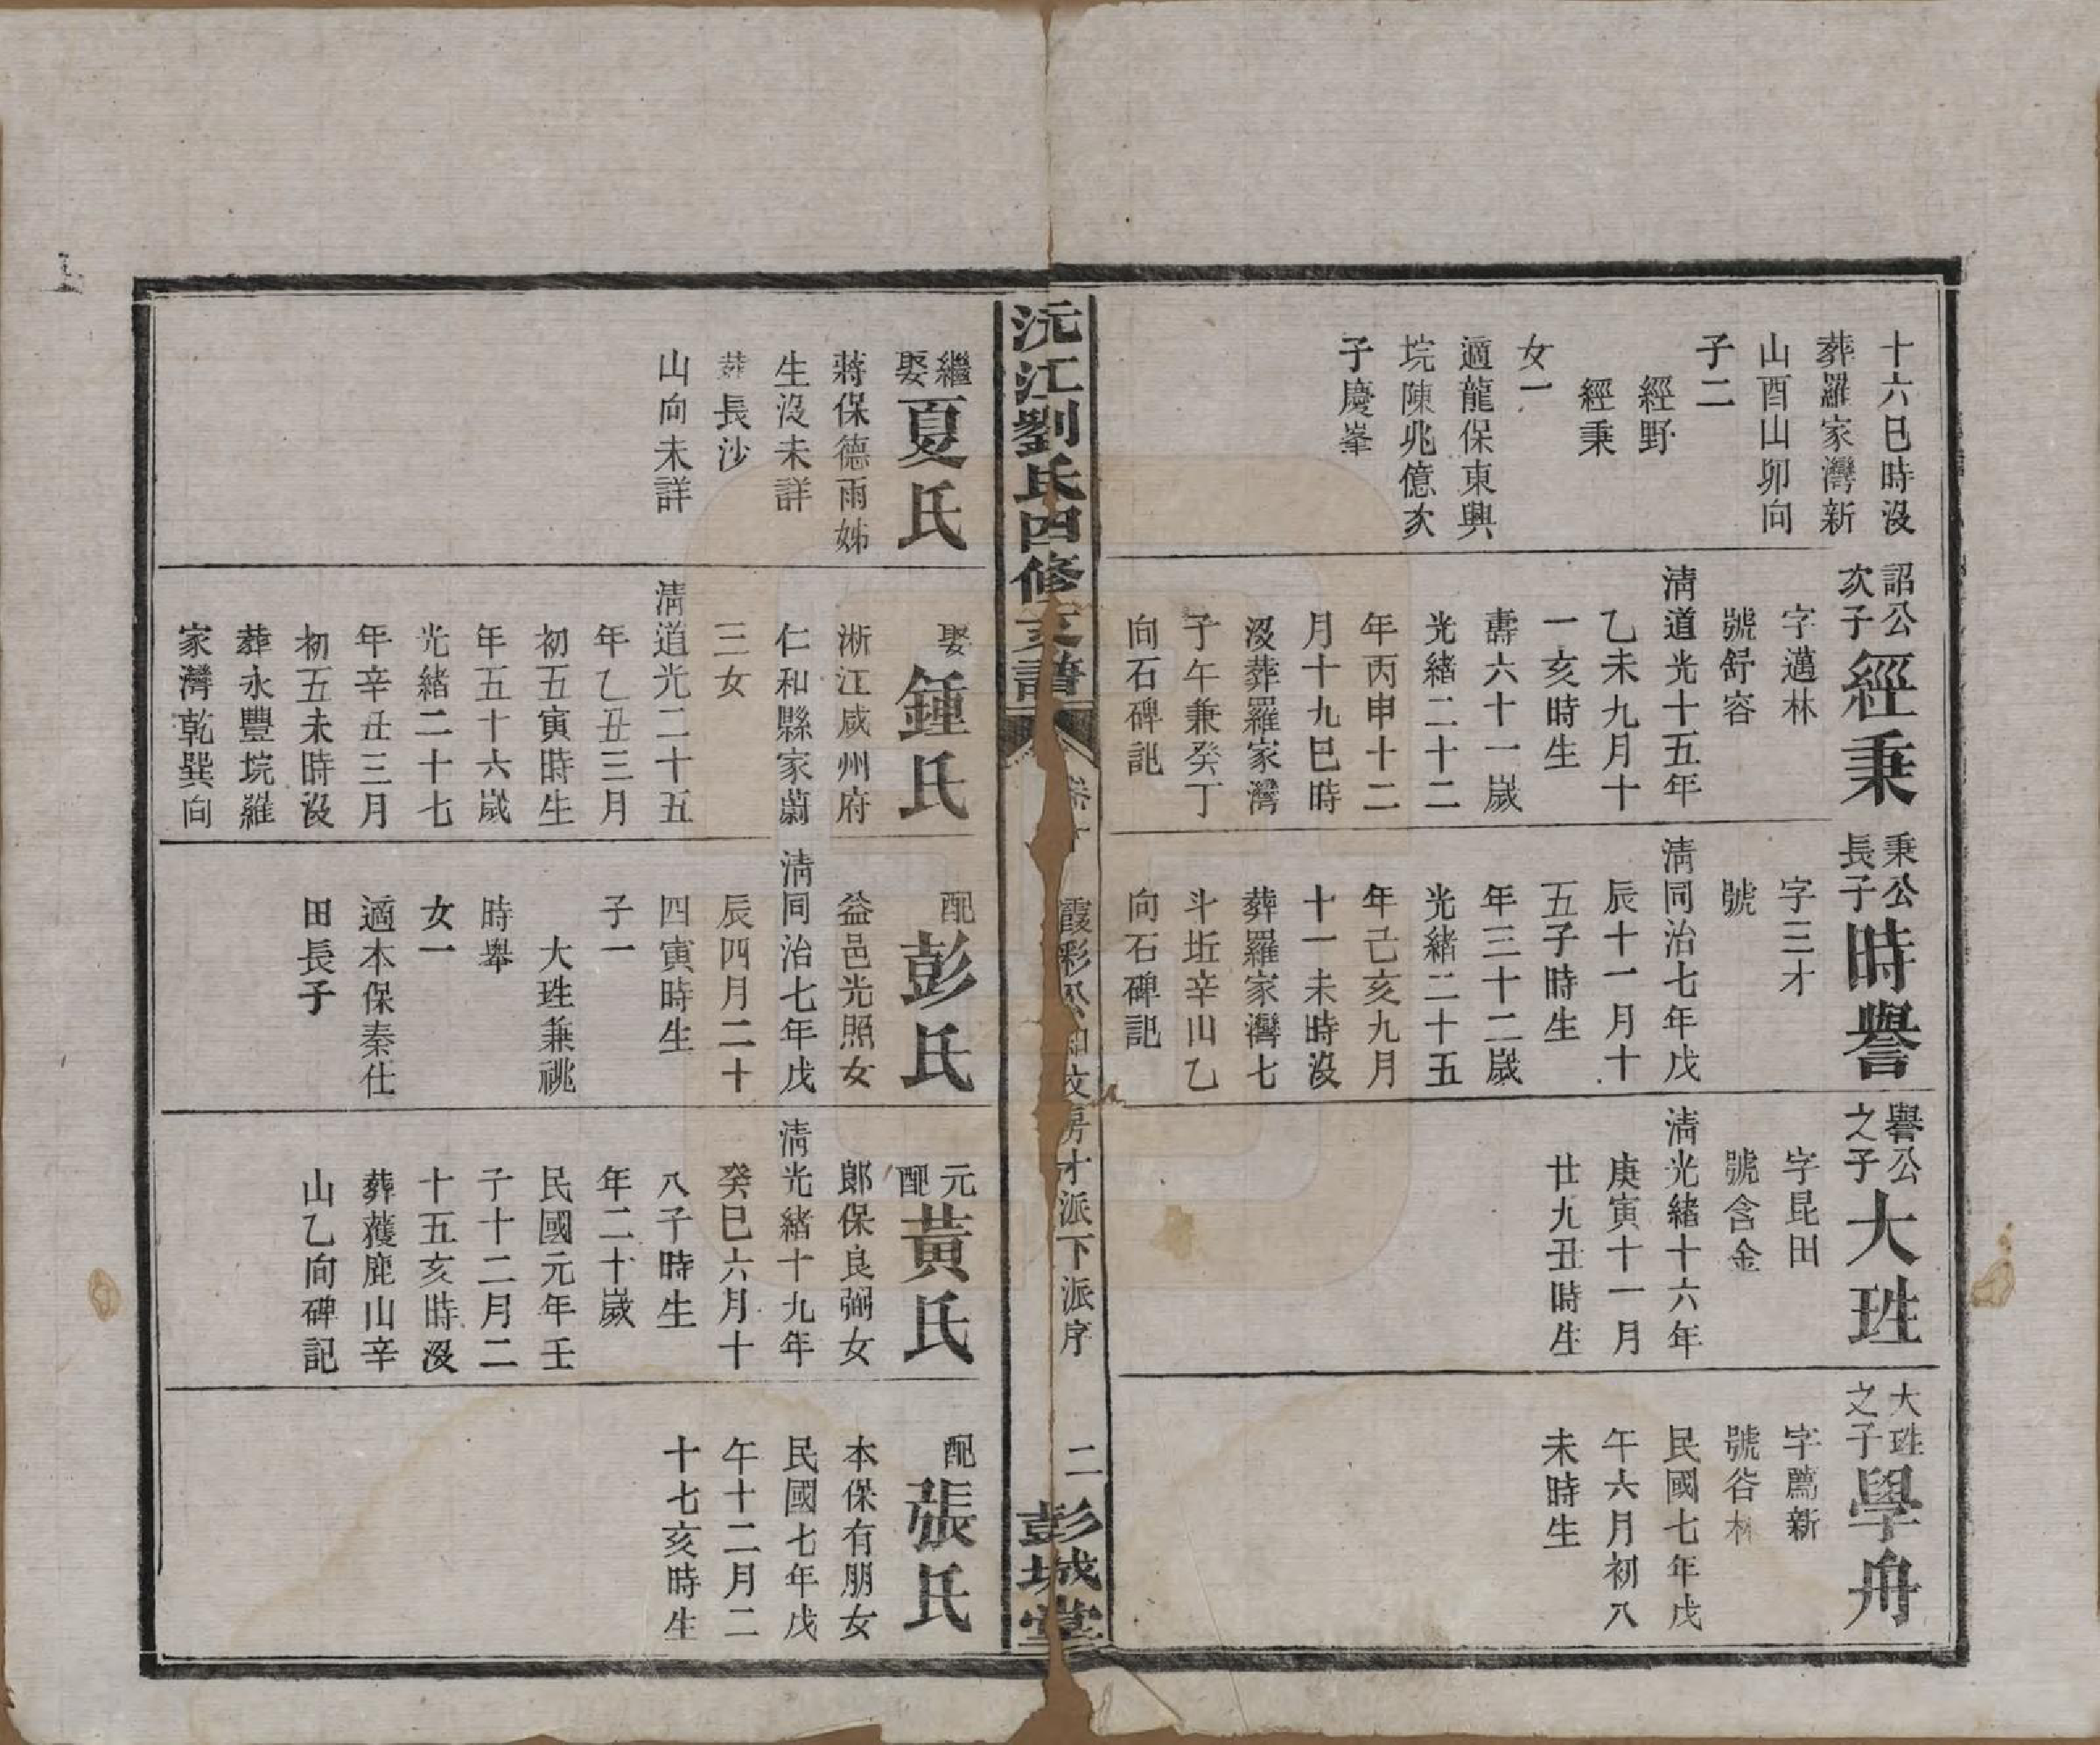 十六巳時沒
葬羅家灣新
山酉山卯向
子二
經野
經秉
女一
適龍保東興
垸陳兆億次
子慶峯
詔公
次子
經秉
字邁林
號舒容
淸道光十五年
乙未九月十
一亥時生
壽六十一嵗
光緖二十二
年丙申十二
月十九巳時
沒葬羅家灣
子午兼癸丁
向石碑誌
秉公
長子
時譽
字三才
號
淸同治七年戊
辰十一月十
五子時生
年三十二嵗
光緖二十五
年己亥九月
十一未時沒
葬羅家灣七
斗坵辛山乙
向石碑記
譽公
之子
大珄
字昆田
號含金
淸光緖十六年
庚寅十一月
廿九丑時生
大珄
之子
學舟
字薦新
號谷林
民國七年戊
午六月初八
未時生
沅江劉氏四修支譜
卷十
霞彩公
房才派下派序
二
彭城堂
繼
娶
夏氏
蔣保德雨姊
生沒未詳
葬長沙
山向未詳
娶
鍾氏
淅江咸州府
仁和縣家蔚
三女
淸道光二十五
年乙丑三月
初五寅時生
年五十六嵗
光緖二十七
年辛丑三月
初五未時沒
葬永豐垸羅
家灣乾巽向
配
彭氏
益邑光照女
淸同治七年戊
辰四月二十
四寅時生
子一
大珄兼祧
時舉
女一
適本保秦仕
田長子
元
配
黃氏
郞保良弼女
淸光緖十九年
癸巳六月十
八子時生
年二十嵗
民國元年壬
子十二月二
十五亥時沒
葬蒦鹿山辛
山乙向碑記
配
張氏
本保有朋女
民國七年戊
午十二月二
十七亥時生